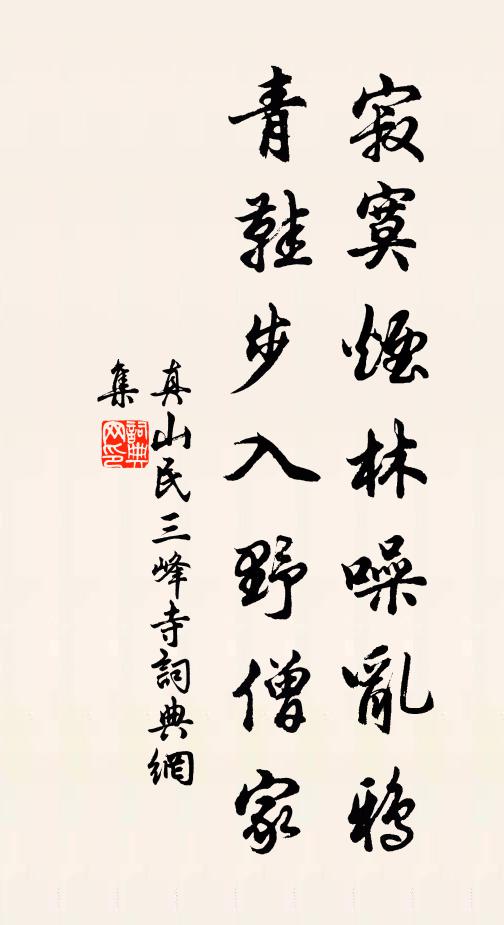 寂寞煙林噪亂鴉
青鞋步入野僧家
真山民三峰寺詞典網
集
詞典網印